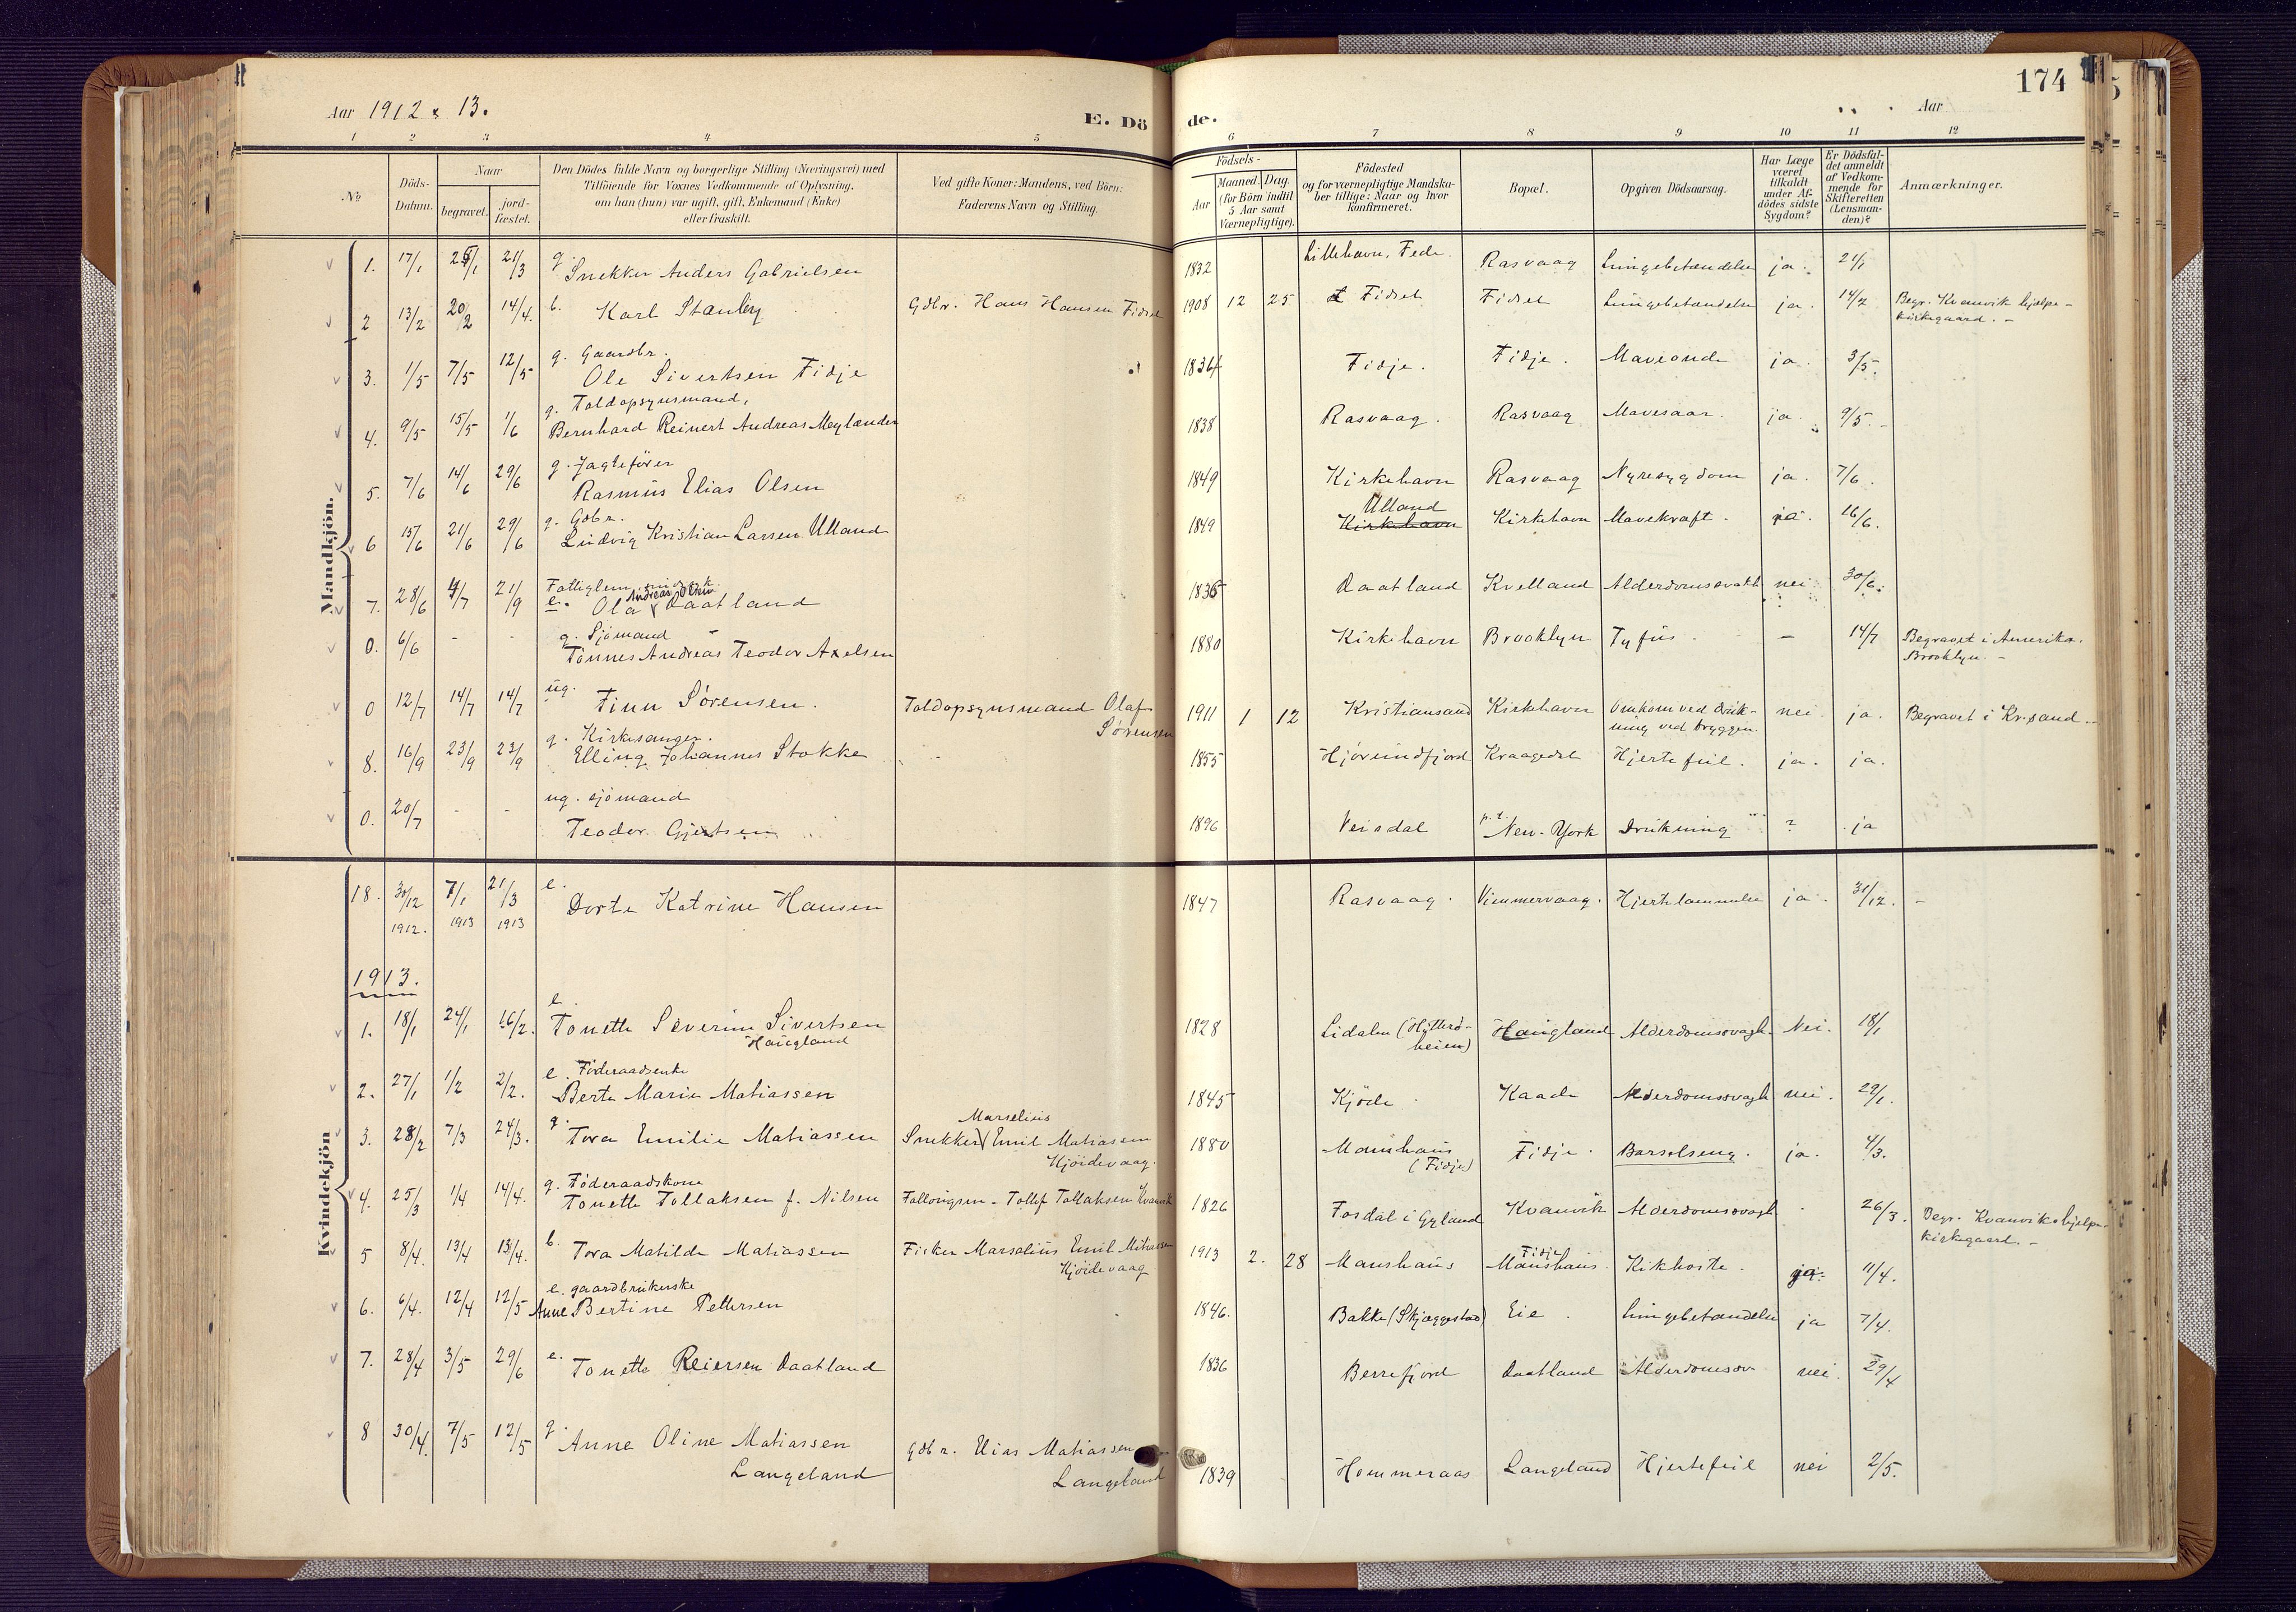 174
Aar 1912 & 13.
E. Dö de.
Aar
1 2 3 4 5 6 7 8 9 10 11 12
No
Döds-Datum.
Naar
begravet.
jord-fæstet.
Den Dödes fulde Navn og borgerlige Stilling (Næringsvei) med
Tilföiende for Voxnes Vedkommende af Oplysning,
om han (hun) var ugift, gift, Enkemand (Enke)
eller fraskilt.
Ved gifte Koner: Mandens, ved Börn:
Faderens Navn og Stilling.
Födsels-
Aar
Maaned. Dag.
(for Börn indtil
5 Aar samt
Værnepligtige).
Födested
og for værnepligtige Mandska-
ber tillige: Naar og hvor
konfirmeret.
Bopæl.
Opgiven Dödsaarsag.
Har Læge
været
tilkaldt
under Af-
dödes sidste
Sygdom?
Er Dödsfal-
det anmeldt
af Vedkom-
mende for
Skifteretten
(Lensman-
den)?
Anmærkninger.
Mandkjön.
1. 17/1 25/1 21/3 g. Snekker Anders Gabrielsen 1832 Lillehavn, Fede. Rasvaag Lungebetændelse ja. 21/1
2 13/2 20/2 14/4. b. Karl Stanley Gdbr. Hans Hansen Fidsel 1908 12 25 Fidsel Fidsel Lungebetændelse ja. 14/2 Begr. Kvanvik hjelpe-
kirkegaard. -
3. 1/5 7/5 12/5 g. Gaardbr.
Ole Sivertsen Fidje 1834 Fidje. Fidje. Maveonde ja. 3/5.
4. 9/5 15/5 1/6 g. Toldopsynsmand,
Bernhard Reinert Andreas Meylænder 1838 Rasvaag. Rasvaag Mavesaar. ja. 9/5.-
5. 7/6 14/6 29/6 g. Jagtefører
Rasmus Elias Olsen 1849 Kirkehavn Rasvaag Nyresygdom ja. 7/6.
6 15/6 21/6 29/6 g. Gdbr.
Ludvig Kristian Larsen Ulland 1849 Ulland
Kirkehavn Kirkehavn Mavekræft. ja. 16/6.
7. 28/6 4/7 21/9 Fattiglem
e. Ola Andreas Olsen Daatland 1835 Daatland Kvelland Alderdomssvakh nei 30/6.
0. 6/6 - - g. Sjömand
Tönnes Andreas Teodor Axelsen 1880 Kirkehavn Brooklyn Tyfus. - 14/7 Begravet i Amerika.
Brooklyn. -
0 12/7 14/7 14/7 ug. Finn Sörensen. Toldopsynsmand Olaf
Sörensen 1911 1 12 Kristiansand Kirkehavn Omkom ved druk-
ning ved bryggen. nei ja. Begravet i Kr.sand. -
8. 16/9 23/9 23/9 g. Kirkesanger.
Elling Johannes Stokke 1855 Hjörundfjord Kraagedal Hjertefeil. ja. ja.
0. 20/7 - - ug. sjömand
Teodor Gjertsen 1896 Veisdal p.t. New-York Drukning ? ja
Kvindekjön
18. 30/12 1912. 7/1 1913 21/3 1913 e. Dorte Katrine Hansen 1847 Rasvaag. Viemmervaag. Hjertelammelse ja. 31/12. -
1913.
1. 18/1 24/1 16/2. e. Tonette Severine Sivertsen
Haugland 1828 Lidalen (Hitterö-
heien) Haugland Alderdomssvagh. Nei. 18/1
2. 27/1 1/2 2/2. e. Föderaadsenke
Berte Marie Matiassen 1845 Kjöde Kaade Alderdomssvagh nei. 29/1.
3. 28/2 7/3 24/3. g. Tora Emilie Matiassen Snekker Marselius Emil Matiassen
Kjöidevaag. 1880 Maushaus
(Fidje) Fidje. Barselseng. ja. 4/3.
4. 25/3 1/4 14/4. g. Föderaadskone
Tonette Tollaksen f. Nilsen Tollorigsm - Tollef Tollaksen Kvanvik 1826 Fosdal i Gyland Kvanvik Alderdomssvagh 26/3. Begr. Kvanvik hjelpe-
kirkegaard. -
5 8/4. 13/4 13/4. b. Tora Matilde Matiassen Fisker Marselius Emil Matiassen
Kjöidevaag 1913 2. 28 Maushaus Fidje
Maushaus. Kikhoste. ja. 11/4.
6. 6/4. 12/4 12/5 e. gaardbrukerske
Anne Bertine Pettersen 1846. Bakke (Skjæggestad) Eie. Lungebetændelse ja 7/4.
7. 28/4 3/5 29/6 e. Tonette Reiersen Daatland 1836 Berrefjord Daatland Alderdomssv nei. 29/4
8 30/4. 7/5 12/5 g. Anne Oline Matiassen
Langeland Gdbr. Elias Matiassen
Langeland 1839 Hommeraas Langeland Hjertefeil nei 2/5.